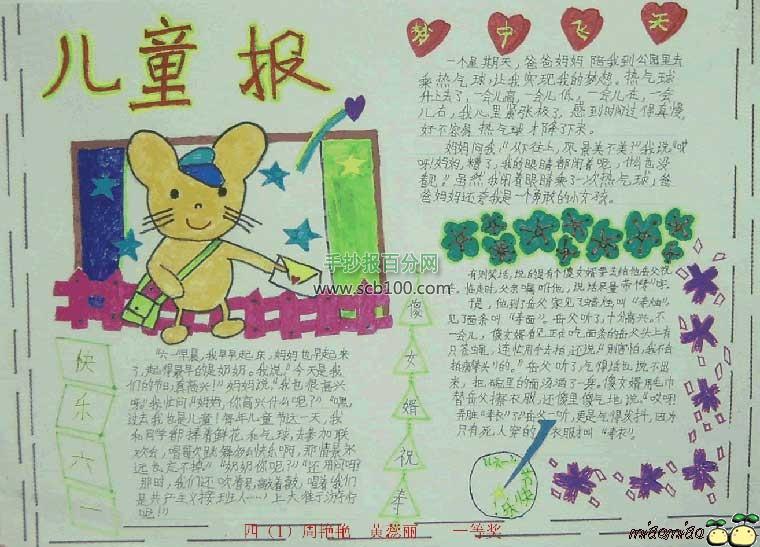 儿童报
梦中飞天
一个星期天，爸爸妈妈陪我到公园里去
乘热气球，让我实现我的梦想。热气球
升上去了，一会儿高，一会儿低，一会儿左，一会
儿右，我心里紧张极了，感到时间过得真慢
好不容易热气球才降了下来。
妈妈问我：“你往上，风景美不美？”我说：“哎
呀！妈妈，糟了，我的眼睛都闭着呢，什么也没
看见。”虽然我闭着眼睛乘了一次热气球，爸
爸妈妈还夸我是一个勇敢的小女孩。
手抄报百分网
www.scb100.com
傻
女
婿
祝
寿
有则笑话，说的是有个傻女婿要去给岳父祝
寿。临走时，父亲嘱咐他，说话尽量带“寿”字。
一会儿，傻女婿看见正在吃面条的岳父头上有
只苍蝇，连忙用手去拍，还说：
岳父听了气得话也说不出
来，把碗里的面洒了一身。傻女婿用毛巾
替岳父擦衣服，还傻里傻气地说：“哎呀
弄脏“寿衣”了”岳父一听，更是气得发抖，因为
只有死人穿的衣服叫“寿衣”。
快
乐
六
一
“六一”早晨，我早早起床，妈妈也早起来
了，起得最早的是奶奶。我说：“今天是我
们的节日，真高兴！”妈妈说：“我也很高兴
呀！”我忙问：“妈妈，你高兴什么呢？”“嘿，
过去我也是儿童！每年儿童节这一天，我
和同学都捧着鲜花，和气球，去参加联
欢会，唱歌欢跳舞，那情景永
远也忘不掉。”“奶奶你呢？”“还用问呀
那时，我们还吹着号，敲着鼓，唱着‘我们
是共产主义接班人……’
“六一”节快乐
四（1）周艳艳 黄蕊丽 一等奖
miaomiao